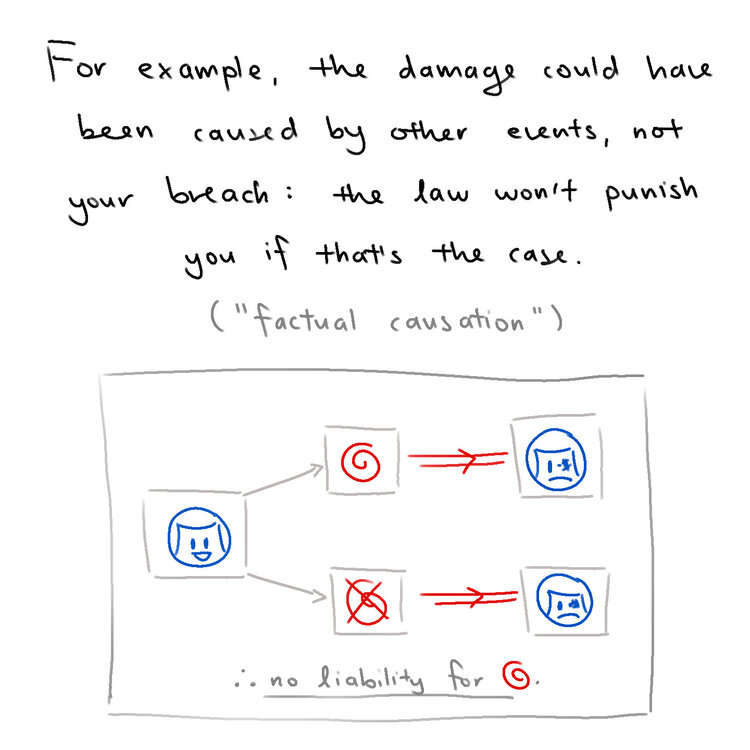 For example, the damage could have
been caused by other events, not
your breach: the law won't punish
you if that's the case.
("factual causation")
∴ no liability for .